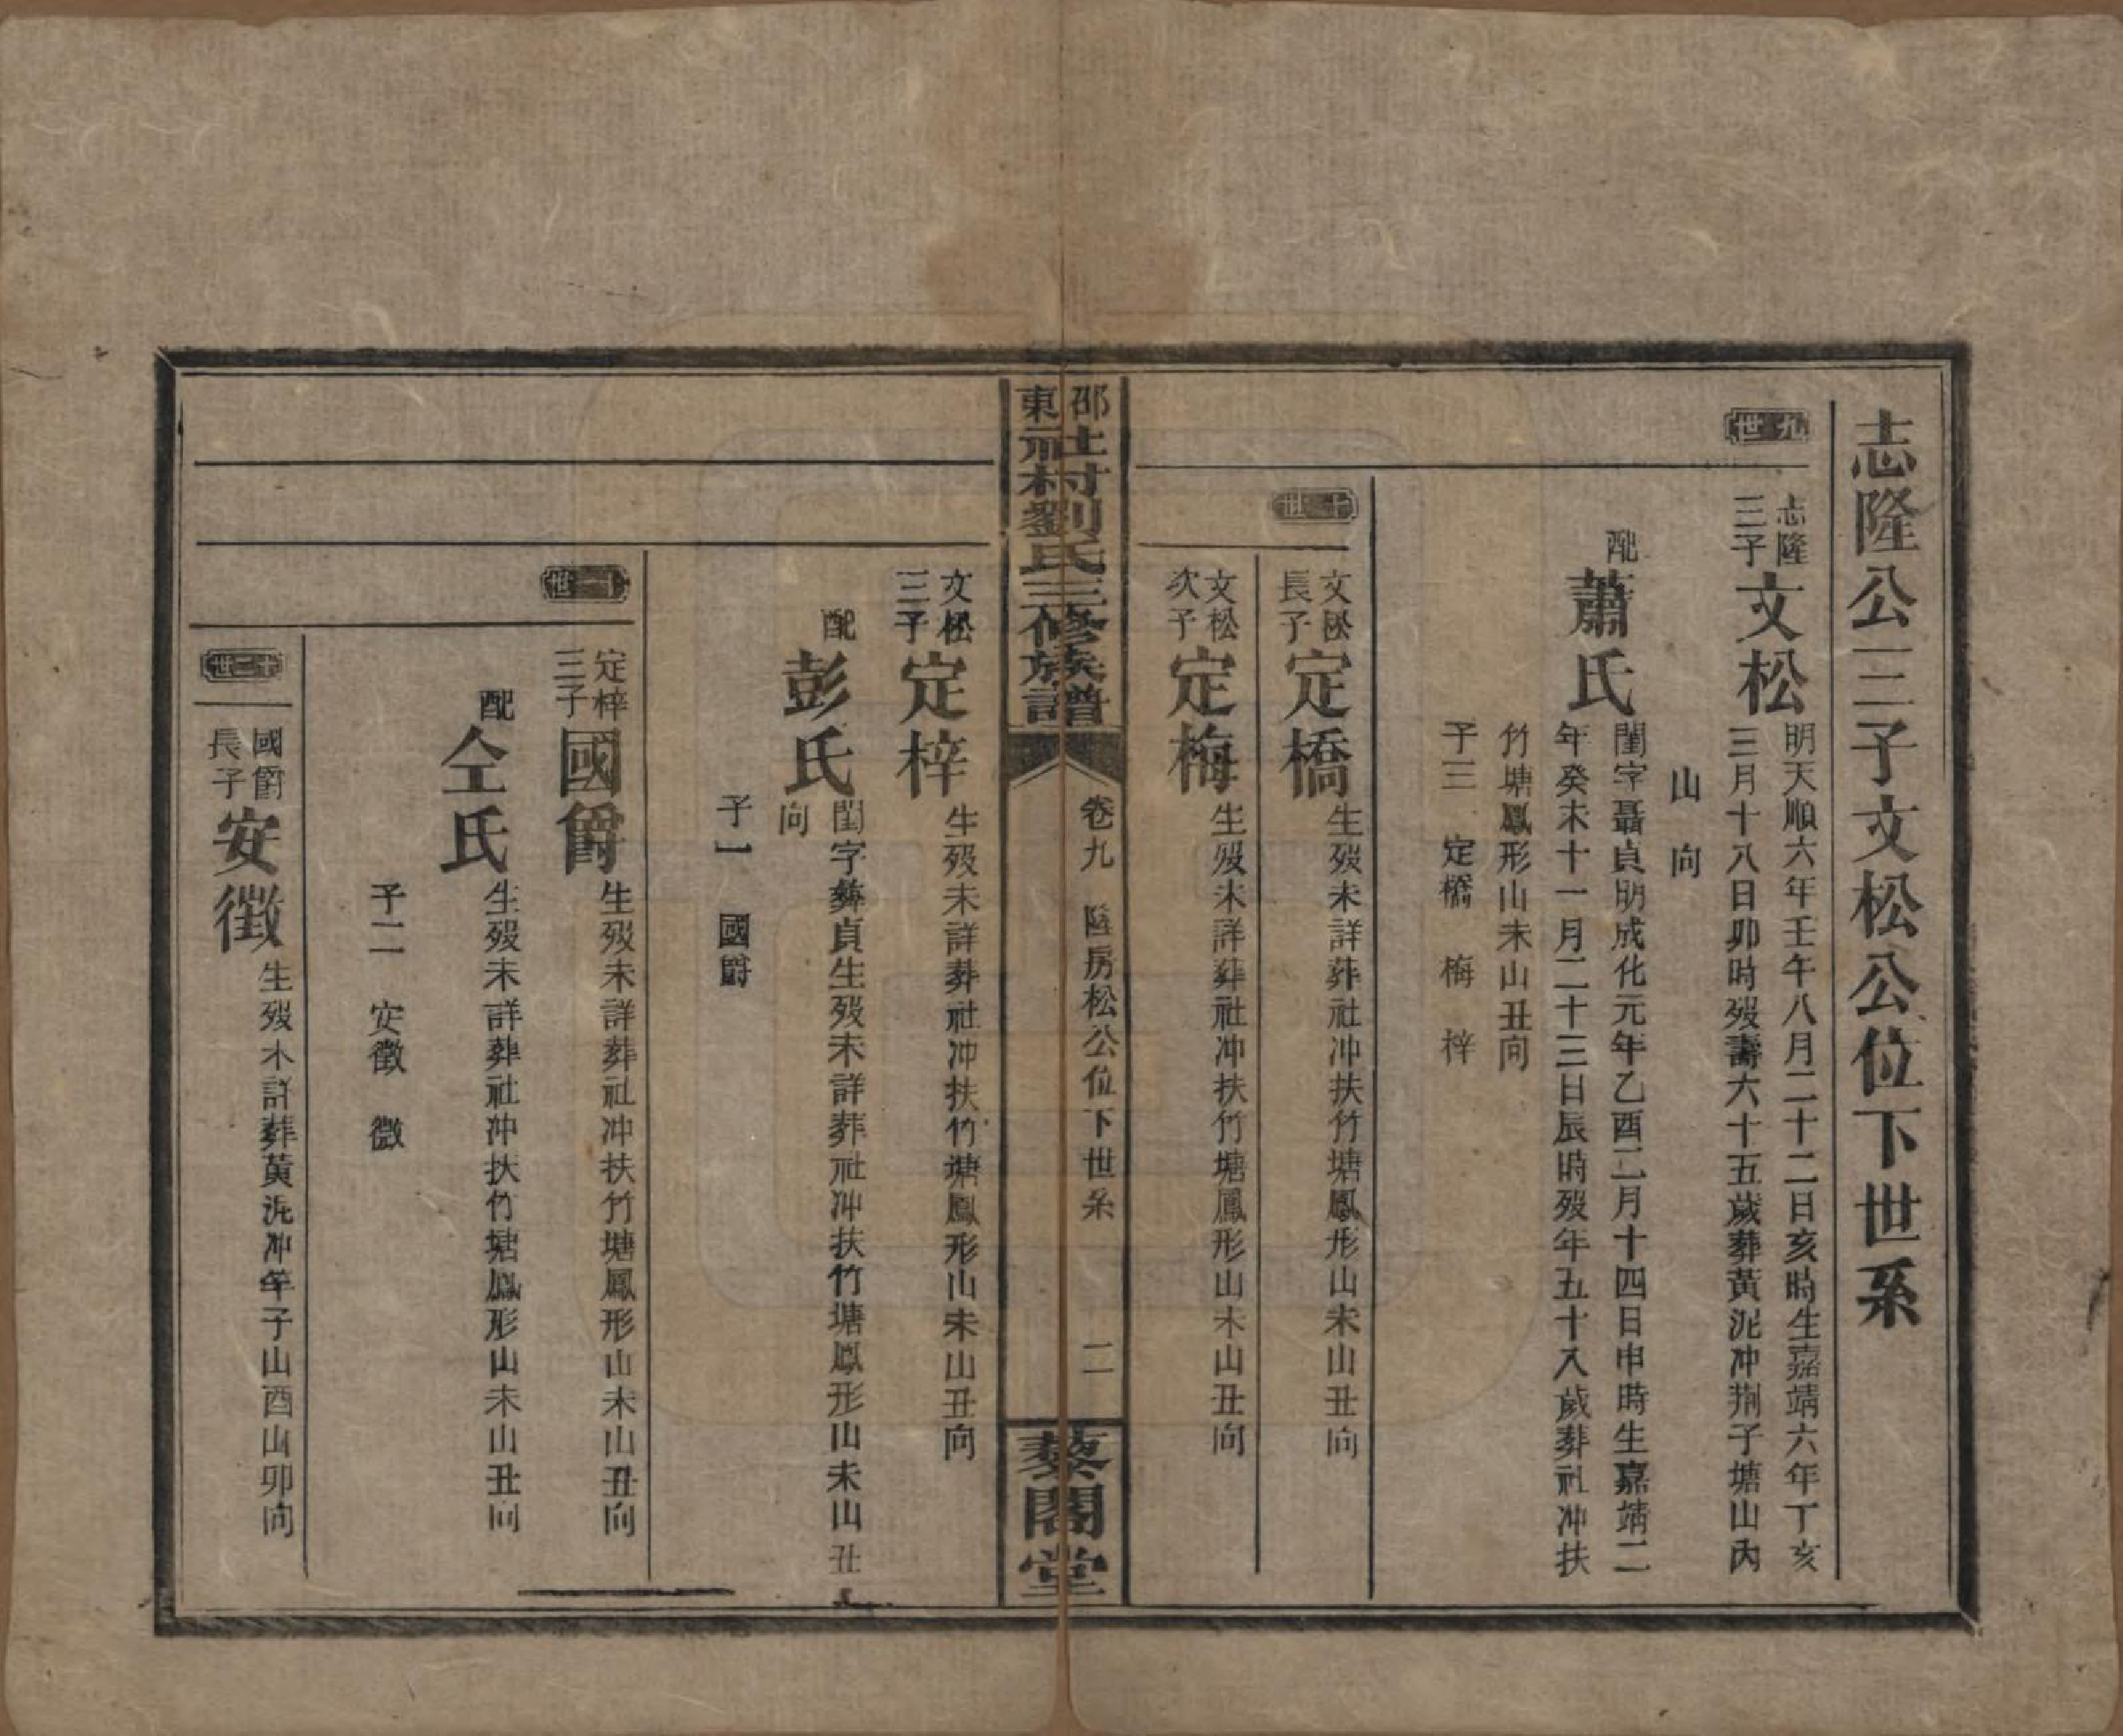 志隆公三子文松公位下世系
九世
志隆
三子
文松
明天順六年壬午八月二十二日亥時生嘉靖六年丁亥
三月十八日卯時歿壽六十五歲葬黃泥冲荆子塘山內
山向
配
蕭氏
閨字聶貞明成化元年乙酉二月十四日申時生嘉靖二
年癸未十一月二十三日辰時歿年五十八歲葬社冲扶
竹塘鳳形山未山丑向
子三 定橋 梅 梓
十世
文松
長子
定橋
生歿未詳葬社冲扶竹塘鳳形山未山丑向
文松
次子
定梅
生歿未詳葬社冲扶竹塘鳳形山未山丑向
邵東社村劉氏三修族譜
卷九 隆房松公位下世系 二
藜閣堂
文松
三子
定梓
生歿未詳葬社冲扶竹塘鳳形山未山丑向
配
彭氏
閨字彝貞生歿未詳葬社冲扶竹塘鳳形山未山丑
向
子一 國爵
十一世
定梓
三子
國爵
生歿未詳葬社冲扶竹塘鳳形山未山丑向
配
仝氏
生歿未詳葬社冲扶竹塘鳳形山未山丑向
子二 安徵 徽
十二世
國爵
長子
安徵
生歿未詳葬黃泥冲竿子山酉山卯向